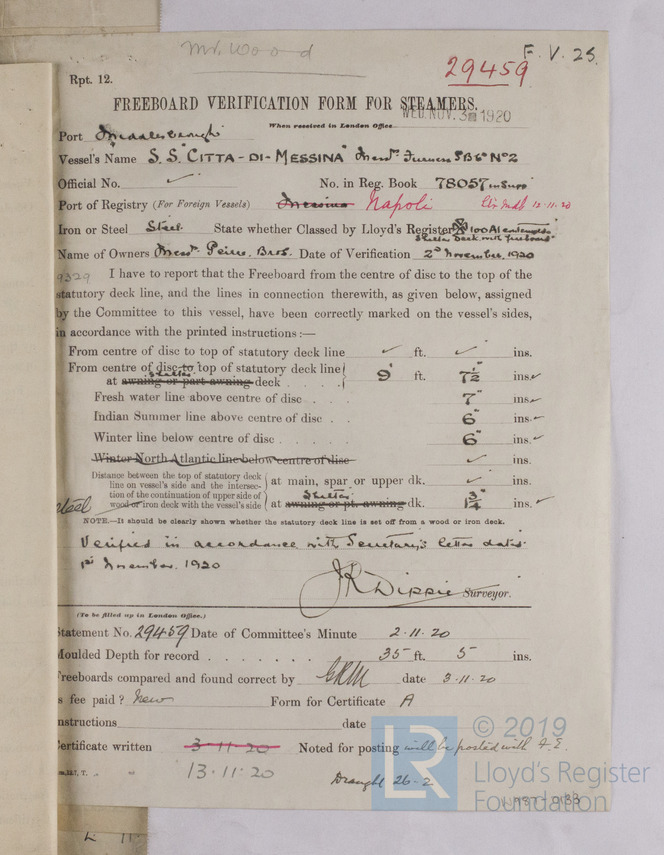 Mr. Wood
F. V. 25.
29459
Rpt. 12.
FREEBOARD VERIFICATION FORM FOR STEAMERS.
When received in London Office WED. NOV. 3 1920
Port Middlesbrough
Vessel's Name S.S. "CITTA-DI-MESSINA" Messrs Furness SB Co No 2
Official No. ✓ No. in Reg. Book 78057 in Supp
Port of Registry (For Foreign Vessels) Messina Napoli 12-11-20
Iron or Steel Steel State whether Classed by Lloyd's Register 100A1
Shelter Deck with freeboard
Name of Owners Messrs Peirce Bros. Date of Verification 2nd November. 1920
9329 I have to report that the Freeboard from the centre of disc to the top of the
statutory deck line, and the lines in connection therewith, as given below, assigned
by the Committee to this vessel, have been correctly marked on the vessel's sides,
in accordance with the printed instructions:—
From centre of disc to top of statutory deck line ✓ ft. ✓ ins.
From centre of disc to top of statutory deck line
at awning or part awning shelter deck . . . . 9' ft. 7½" ins ✓
Fresh water line above centre of disc . . . 7" ins ✓
Indian Summer line above centre of disc . . 6" ins. ✓
Winter line below centre of disc . . . . . 6" ins. ✓
Winter North Atlantic line below centre of disc ✓ ins.
Distance between the top of statutory deck
line on vessel's side and the intersec-
tion of the continuation of upper side of
wood or iron deck with the vessel's side
at main, spar or upper dk. ✓ ins.
Steel
at awning or pt. awning Shelter dk. 1¾" ins. ✓
NOTE.—It should be clearly shown whether the statutory deck line is set off from a wood or iron deck.
Verified in accordance with Secretary's letter dated
1st November. 1920
J R Dippie Surveyor.
(To be filled up in London Office.)
Statement No. 29459 Date of Committee's Minute 2.11.20
Moulded Depth for record . . . . . . . 35 ft. 5 ins.
Freeboards compared and found correct by date 3.11.20
Is fee paid? New Form for Certificate A
Instructions date
Certificate written 3-11-20 Noted for posting will be posted with F.E.
13.11.20
Draught 26-2
LR
© 2019
Lloyd's Register
Foundation